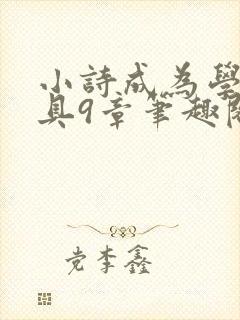 小詩成為學
具9章筆趣閣
党李鑫